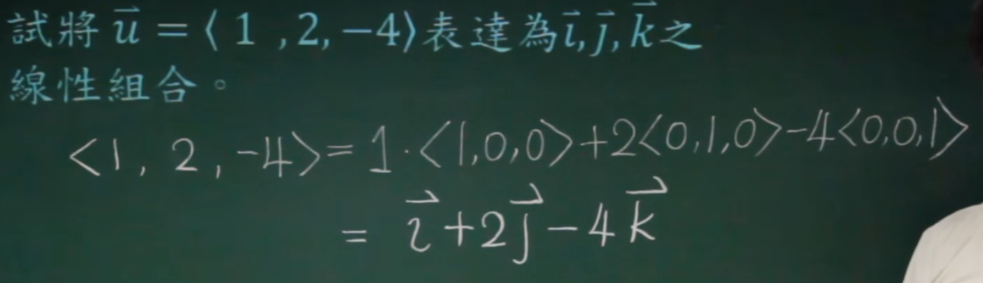 試將 u⃗ = ⟨ 1 ,2, −4⟩表達為i⃗, j⃗, k⃗之
線性組合。
<1, 2, -4> = 1·<1,0,0>+2<0,1,0>-4<0,0,1>
= i⃗+2j⃗-4k⃗